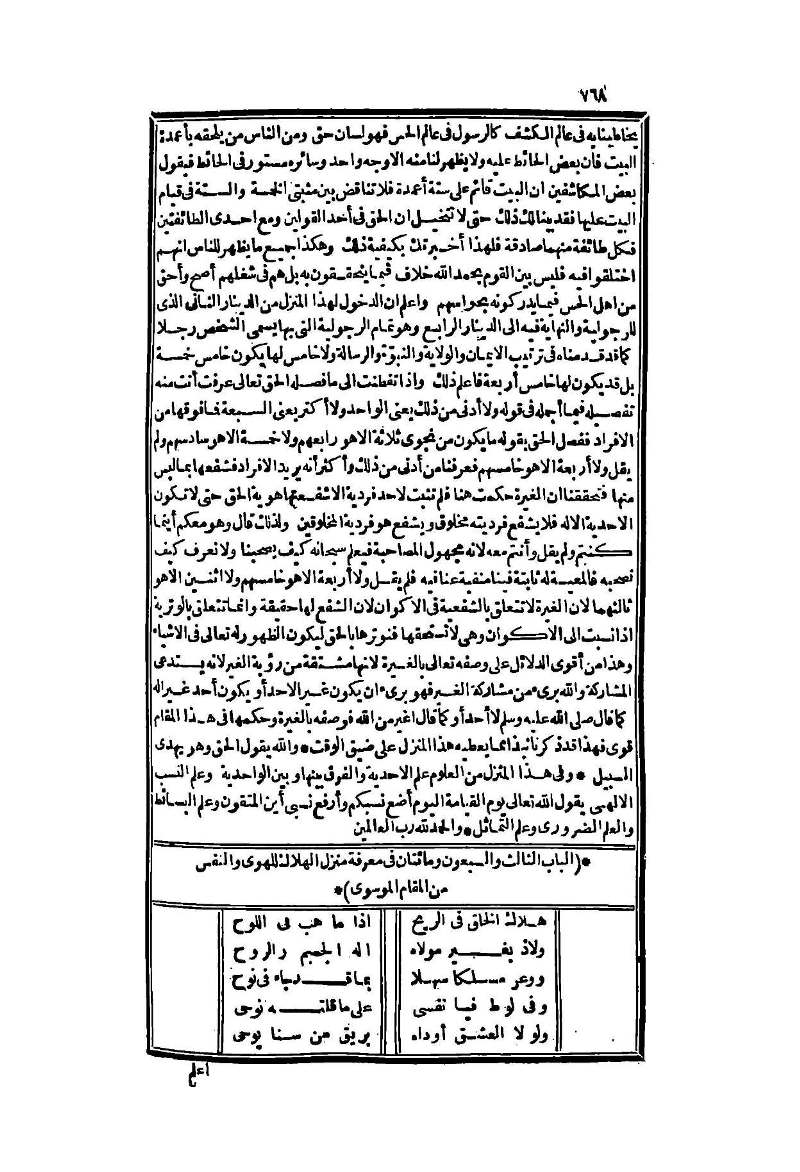 ٧٦٨
يخاطبنا به فى عالم الكشف كالرسول فى عالم الحس فهو لسان حق ومن الناس من يلحقه بأعمدة
البيت فان بعض الحائط عليه ولا يظهر لنا منه الا وجه واحد وسائره مستور فى الحائط فيقول
بعض المكاشفين ان البيت قائم على ستة أعمدة فلا تناقض بين مثبتى الخمسة والستة فى قيام
البيت عليها فقد بينا لك ذلك حتى لا تتخيل ان الحق فى أحد القولين ومع احدى الطائفتين
فكل طائفة منهما صادقة فلهذا أخبرتك بكيفية ذلك وهكذا جميع ما يظهر للناس انهم
اختلفوا فيه فليس بين القوم بحمد الله خلاف فيما يتحققون به بل هم فى شغلهم أصح وأحق
من اهل الحس فيما يدركونه بحواسهم واعلم ان الدخول لهذا المنزل من الدينار الثانى الذى
للرجولية والنهاية فيه الى الدينار الرابع وهو تمام الرجولية التى بها يسمى الشخص رجلا
كما قد قدمناه فى ترتيب الايمان والولاية والنبوة والرسالة ولا خامس لها يكون خامس خمسة
بل قد يكون لها خامس أربعة فاعلم ذلك واذا تفطنت الى ما فصله الحق تعالى عرفت أنت منه
تفصيله فيما أجمله فى قوله ولا أدنى من ذلك يعنى الواحد ولا أكثر يعنى السبعة فما فوقها من
الافراد ففصل الحق بقوله ما يكون من نجوى ثلاثة الا هو رابعهم ولا خمسة الا هو سادسهم ولم
يقل ولا أربعة الا هو خامسهم فعرفنا من أدنى من ذلك وأكثر أنه يريد الافراد فشفعها بما ليس
منها فتحققنا ان الغيرة حكمت هنا فلم تثبت لاحد فردية الا شفعتها هوية الحق حتى لا تكون
الاحدية الا له فلا يشفع فرديته مخلوق ويشفع هو فردية المخلوقين ولذلك قال وهو معكم أينما
كنتم ولم يقل وأنتم معه لانه مجهول المصاحبة فيعلم سبحانه كيف يصحبنا ولا نعرف كيف
نصحبه فالمعية له ثابتة فينا منفية عنا فيه فلم يقل ولا أربعة الا هو خامسهم ولا اثنين الا هو
ثالثهما لان الغيرة لا تتعلق بالشفعية فى الاكوان لان الشفع لها حقيقة وانما تتعلق بالوترية
اذا نسبت الى الاكوان وهى لا تستحقها فنوترها بالحق ليكون الظهور له تعالى فى الاشياء
وهذا من أقوى الدلائل على وصفه تعالى بالغيرة لانها مشتقة من رؤية الغير لانه يستدعى
المشاركة والله برىء من مشاركة الغير فهو برىء ان يكون غير الاحد أو يكون أحد غيرا له
كما قال صلى الله عليه وسلم لا أحد أو كما قال اغير من الله فوصفه بالغيرة وحكمها فى هذا المقام
قوى فهذا قد ذكرنا نبذا مما يعطيه هذا المنزل على ضيق الوقت * والله يقول الحق وهو يهدى
السبيل * وفى هذا المنزل من العلوم علم الاحدية والفرق بينها وبين الواحدية وعلم النسب
الالهى يقول الله تعالى يوم القيامة اليوم أضع نسبكم وأرفع نسبى أين المتقون وعلم البسائط
والعلم الضرورى وعلم التماثل * والحمد لله رب العالمين
*(الباب الثالث والسبعون ومائتان فى معرفة منزل الهلاك للهوى والنفس
من المقام الموسوى)*
هلاك الخلق فى الريح اذا ما هب فى اللوح
ولاذ بغير مولاه اله الجسم والروح
ووعر مسلكا سهلا بما قد جاء فى نوح
وفى لوط فيا نفسى على ما قلته نوحى
ولو لا العشق أوداه بريق من سنا يوحى
اعلم